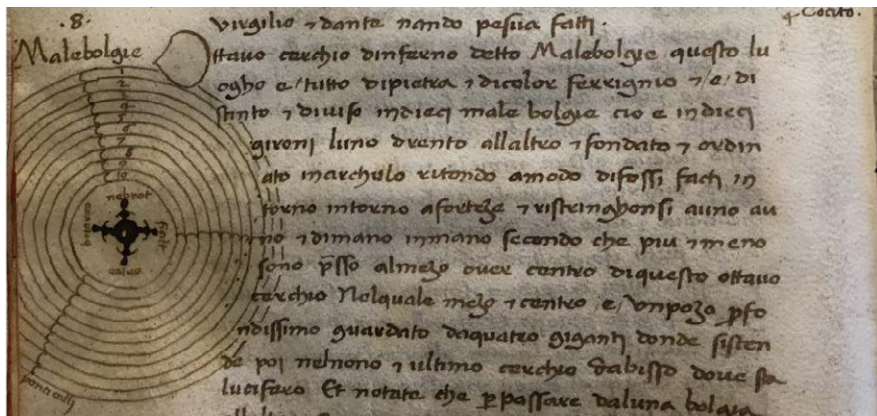 virgilio ⁊ dante nando pesua fatti .
Cocito .
. 8 .
Malebolgie
Ottavo cerchio dinferno detto Malebolgie questo lu
ogho e / tutto dipietra ⁊ dicolor ferrignio ⁊ / e / di
stinto ⁊ diviso indieci male bolgie cio e indieci
gironi luno drento allaltro ⁊ fondato ⁊ ordin
ato inarchulo ritondo amodo difossi facti in
torno intorno aforteze ⁊ ristringhonsi auno au
no ⁊ dimano inmano secondo che piu ⁊ meno
sono presso almezo over centro diquesto ottavo
cerchio Nelquale mezo ⁊ centro / e / vnpozo profo
ndissimo guardato daquatro giganti donde sisten
de poi nelnono ⁊ ultimo cerchio dabisso dove sta
lucifero Et notate che perpassare daluna bolgia
1
2
3
4
5
6
7
8
9
10
nebrot
ponticelli